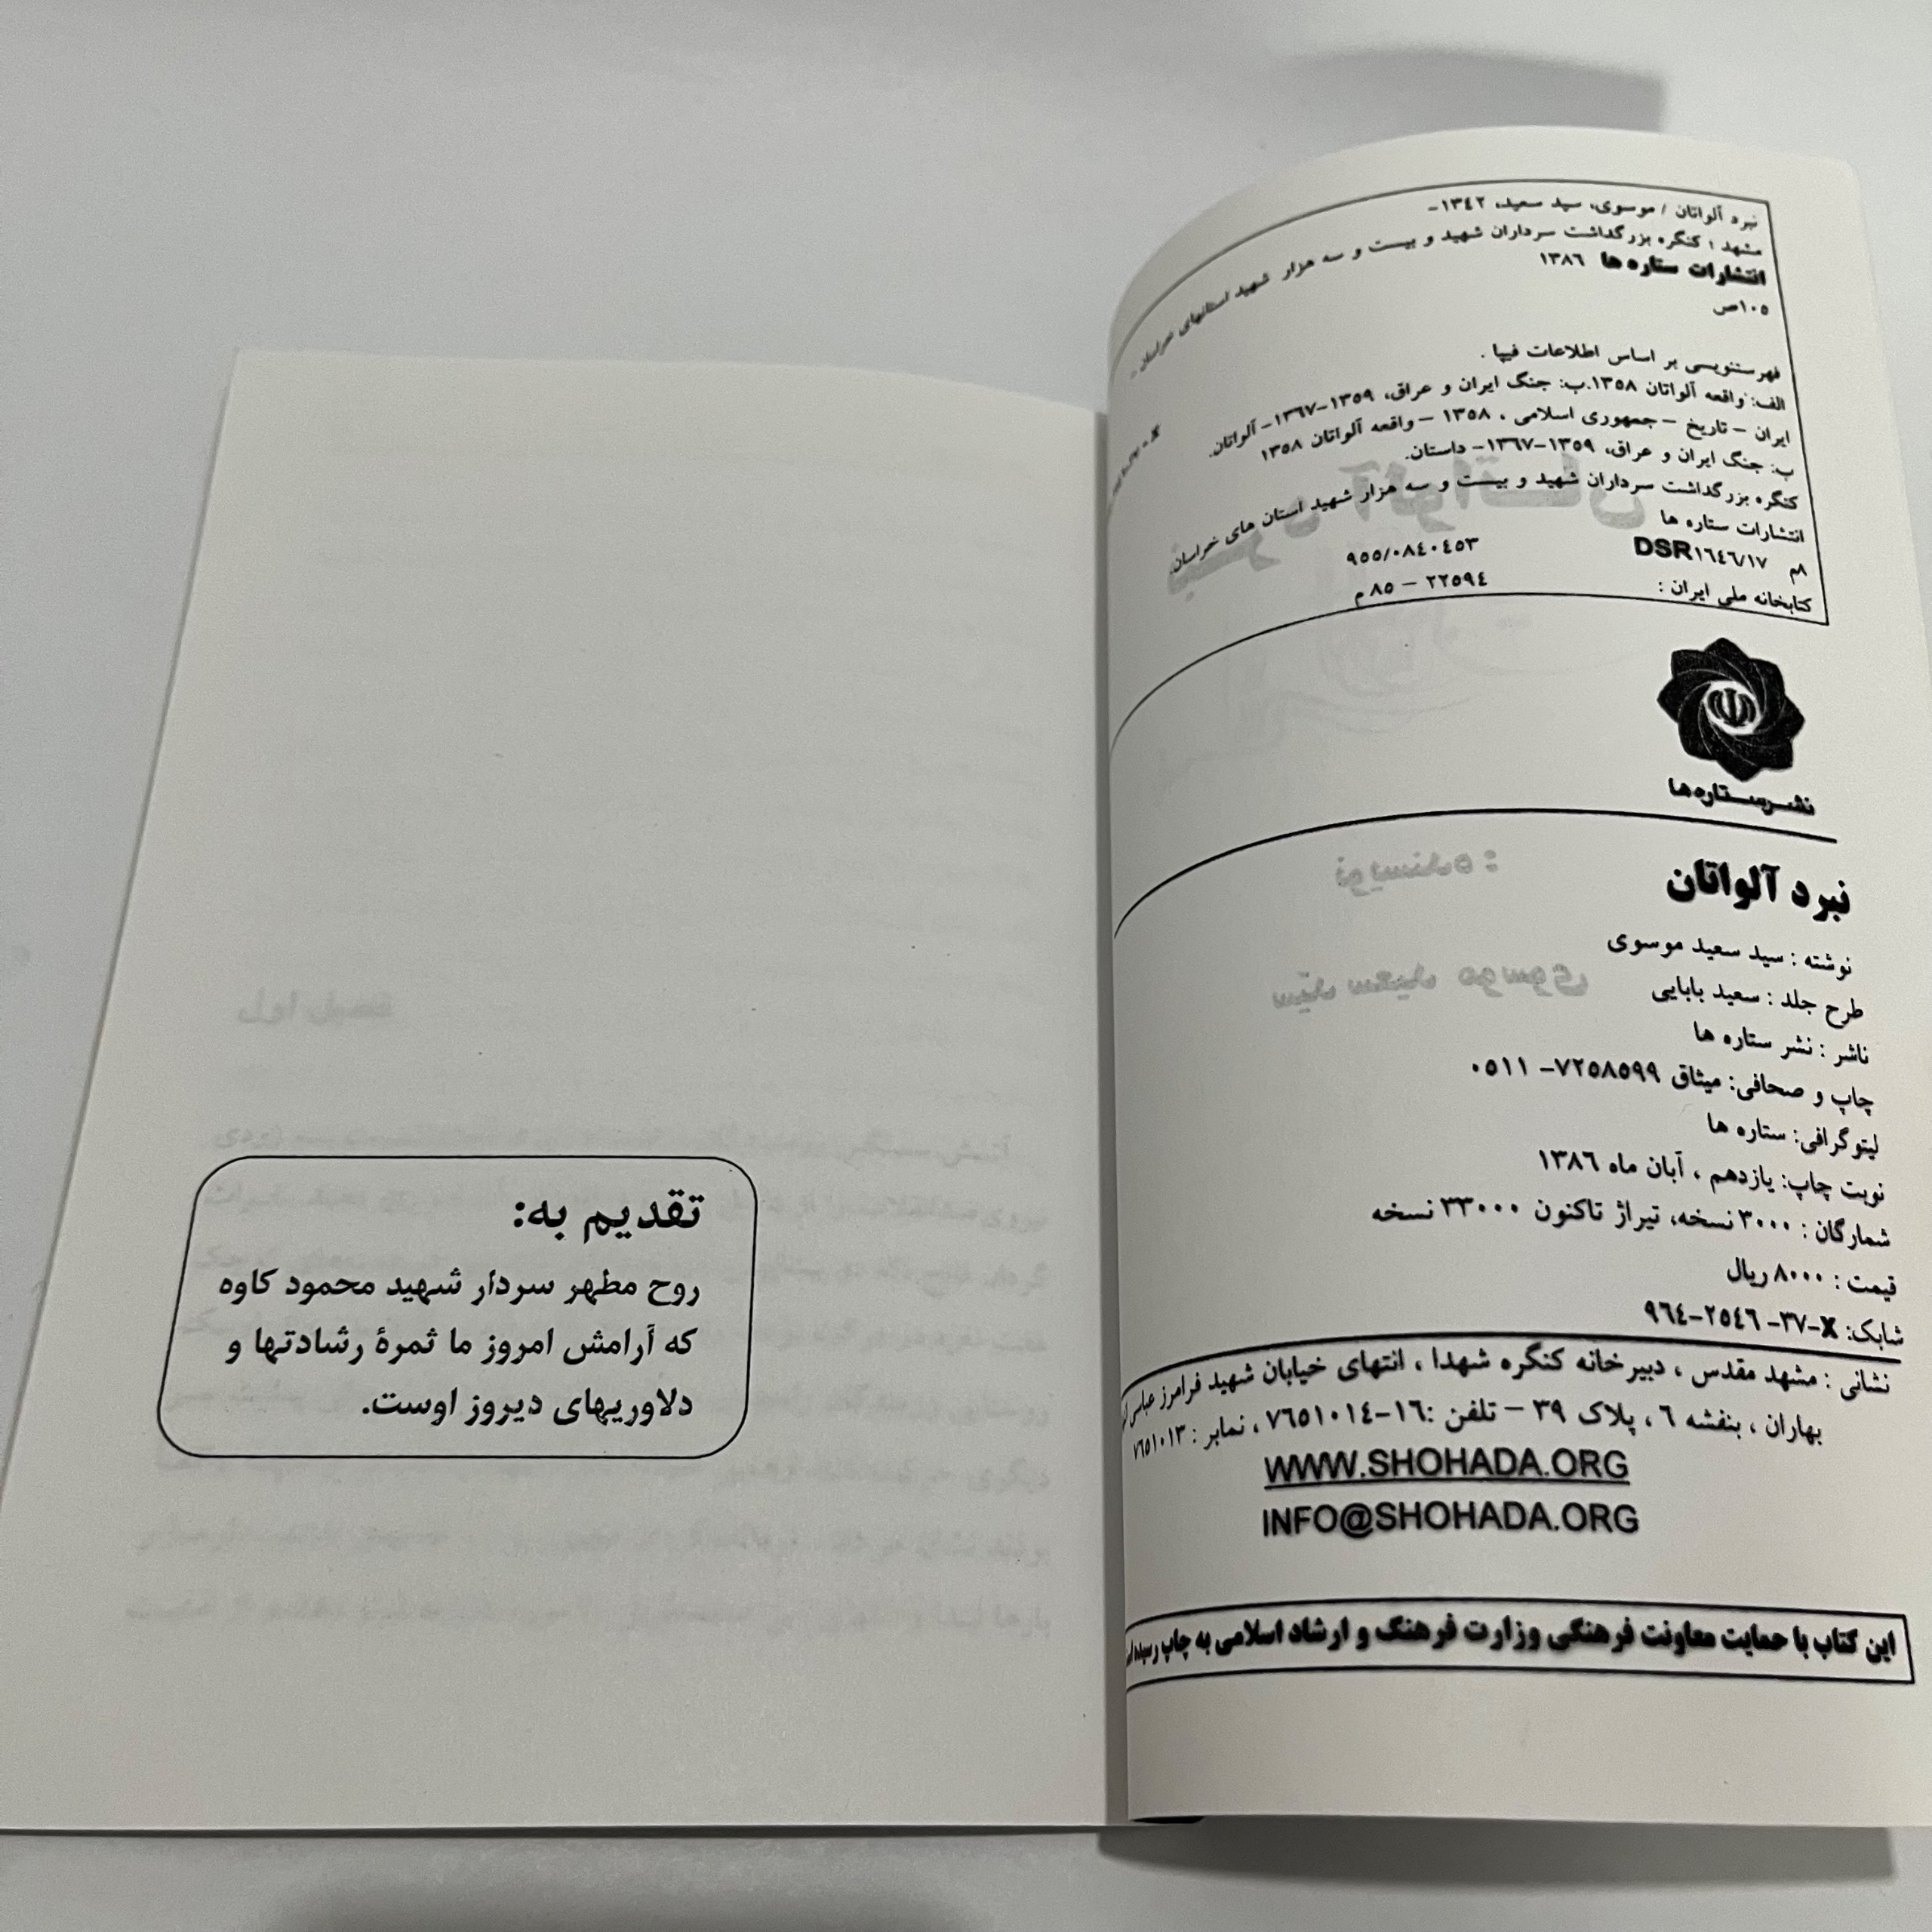 نبرد آلواتان / موسوی، سید سعید، ۱۳٤۲-
مشهد ؛ کنگره بزرگداشت سرداران شهید و بیست و سه هزار شهید استانهای خراسان -
انتشارات ستاره ها ۱۳۸٦
۱۰٥ص
X - ۳۷
فهرستنویسی بر اساس اطلاعات فیپا .
الف: واقعه آلواتان ۱۳٥۸.ب: جنگ ایران و عراق، ۱۳٥۹-۱۳٦۷- آلواتان.
ایران - تاریخ - جمهوری اسلامی ، ۱۳٥۸ - واقعه آلواتان ۱۳٥۸
ب: جنگ ایران و عراق، ۱۳٥۹-۱۳٦۷- داستان.
کنگره بزرگداشت سرداران شهید و بیست و سه هزار شهید استان های خراسان.
انتشارات ستاره ها
۸م DSR۱٦٤٦/۱۷ ۹٥٥/۰۸٤۰٤٥۳
کتابخانه ملی ایران : ۲۲٥۹٤ – ۸٥ م
نشر ستاره‌ها
نبرد آلواتان
نوشته : سید سعید موسوی
طرح جلد : سعید بابایی
ناشر : نشر ستاره ها
چاپ و صحافی: میثاق ۷۲٥۸٥۹۹- ۰٥۱۱
لیتوگرافی: ستاره ها
نوبت چاپ: یازدهم ، آبان ماه ۱۳۸٦
شمارگان : ۳۰۰۰ نسخه، تیراژ تاکنون ۳۳۰۰۰ نسخه
قیمت : ۸۰۰۰ ریال
شابک: X-۳۷- ۲٥٤٦-۹٦٤
نشانی : مشهد مقدس ، دبیرخانه کنگره شهدا ، انتهای خیابان شهید فرامرز عباسی
بهاران ، بنفشه ٦ ، پلاک ۳۹ – تلفن :۱٦-۷٦٥۱۰۱٤ ، نمابر : ۷٦٥۱۰۱۳
WWW.SHOHADA.ORG
INFO@SHOHADA.ORG
این کتاب با حمایت معاونت فرهنگی وزارت فرهنگ و ارشاد اسلامی به چاپ رسیده
تقدیم به:
روح مطهر سردار شهید محمود کاوه
که آرامش امروز ما ثمرهٔ رشادتها و
دلاوریهای دیروز اوست.